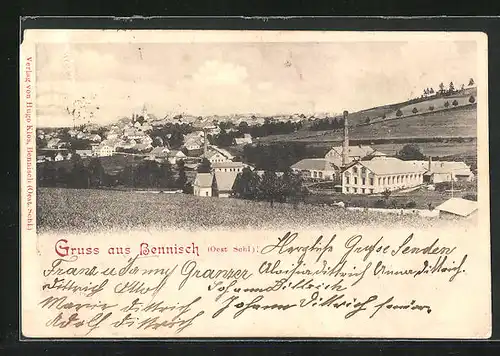 Verlag von Hugo Kios, Bennisch (Oest. Schl.)
Gruss aus Bennisch (Oest. Schl.)!
Herzlichste Grüsse Senden
Franz u Fanny Granzer
Aloisia Dittrich Anna Dittrich.
Dittrich Johann Dittrich
Marie Dittrich Johann Dittrich senior.
Adolf Dittrich